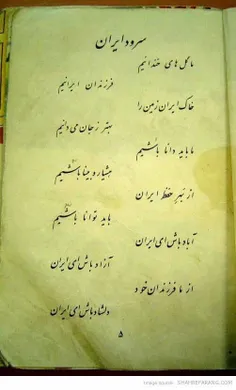 سرود ایران
ما گل های خندانیم
فرزندان ایرانیم
خاک ایران زمین را
بهتر ز جان می دانیم
ما باید دانا باشیم
هشیار و بینا باشیم
از بهر حفظ ایران
باید توانا باشیم
آباد باش ای ایران
آزاد باش ای ایران
از ما فرزندان خود
دلشاد باش ای ایران
۵
image source: SHAHREFARANG.COM